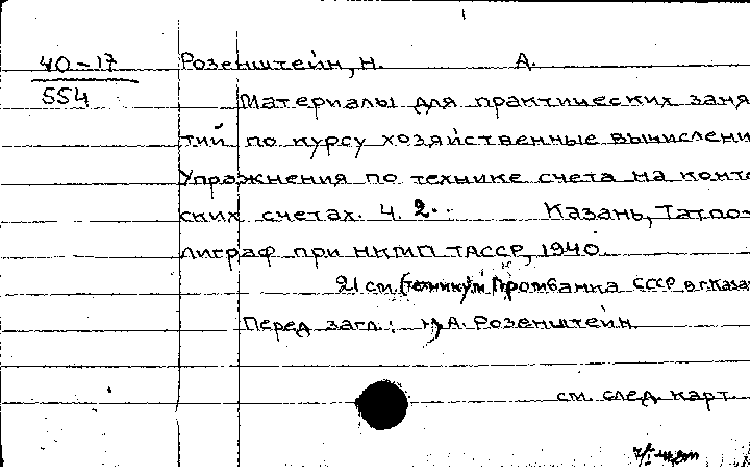 40-17 Розенштейн, Н. А.
554 Материалы для практических заня
тий по курсу хозяйственные вычислени
Упражнения по технике счета на конто
ских счетах. Ч. 2. Казань, Татпо-
лиграф при НКМП ТАССР, 1940.
21 см. (Техникум Промбанка СССР в г. Каза
Перед загл.: Н. А. Розенштейн.
см. след. карт.